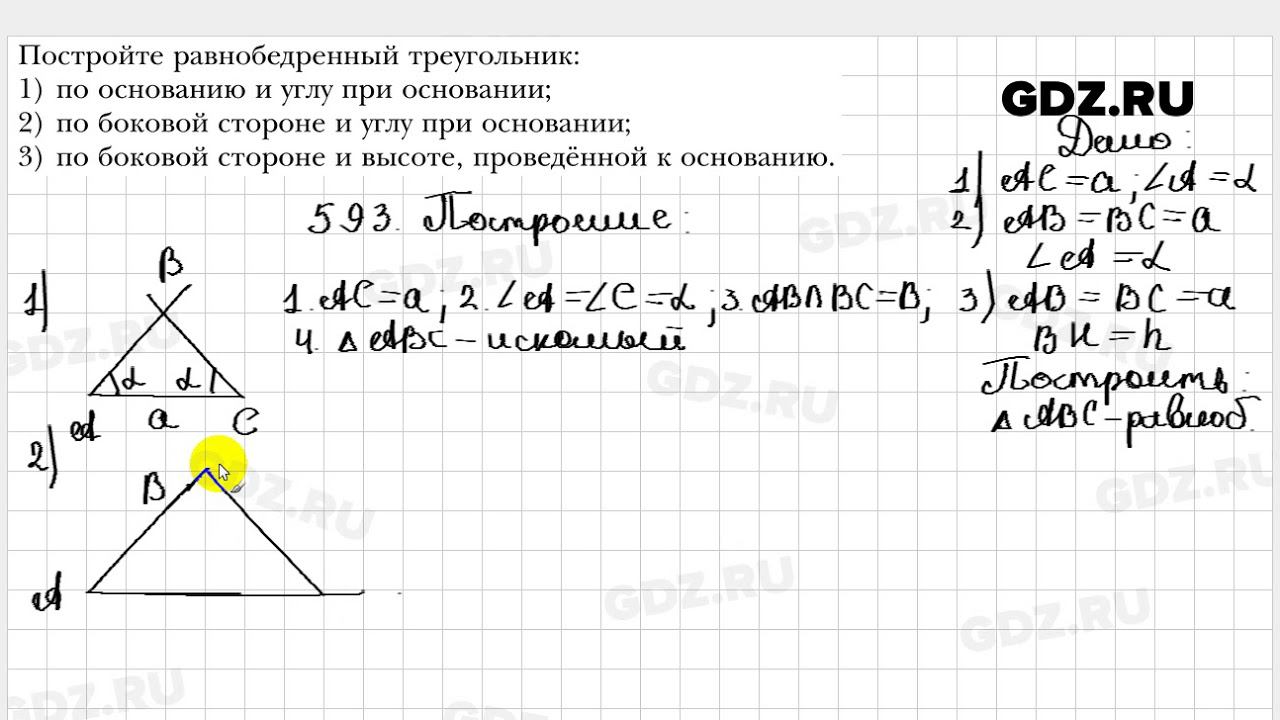 Постройте равнобедренный треугольник:
1) по основанию и углу при основании;
2) по боковой стороне и углу при основании;
3) по боковой стороне и высоте, проведённой к основанию.
GDZ.RU
Дано:
1) AC = a; ∠A = α
2) AB = BC = a
∠A = α
3) AB = BC = a
BK = h
Построить:
△ABC – равноб.
593. Построение:
1)
B
α α
A a C
1. AC = a; 2. ∠A = ∠C = α; 3. AB ∩ BC = B;
4. △ABC – искомый
2)
B
A
GDZ.RU
GDZ.RU
GDZ.RU
GDZ.RU
GDZ.RU
GDZ.RU
GDZ.RU
GDZ.RU
GDZ.RU
GDZ.RU